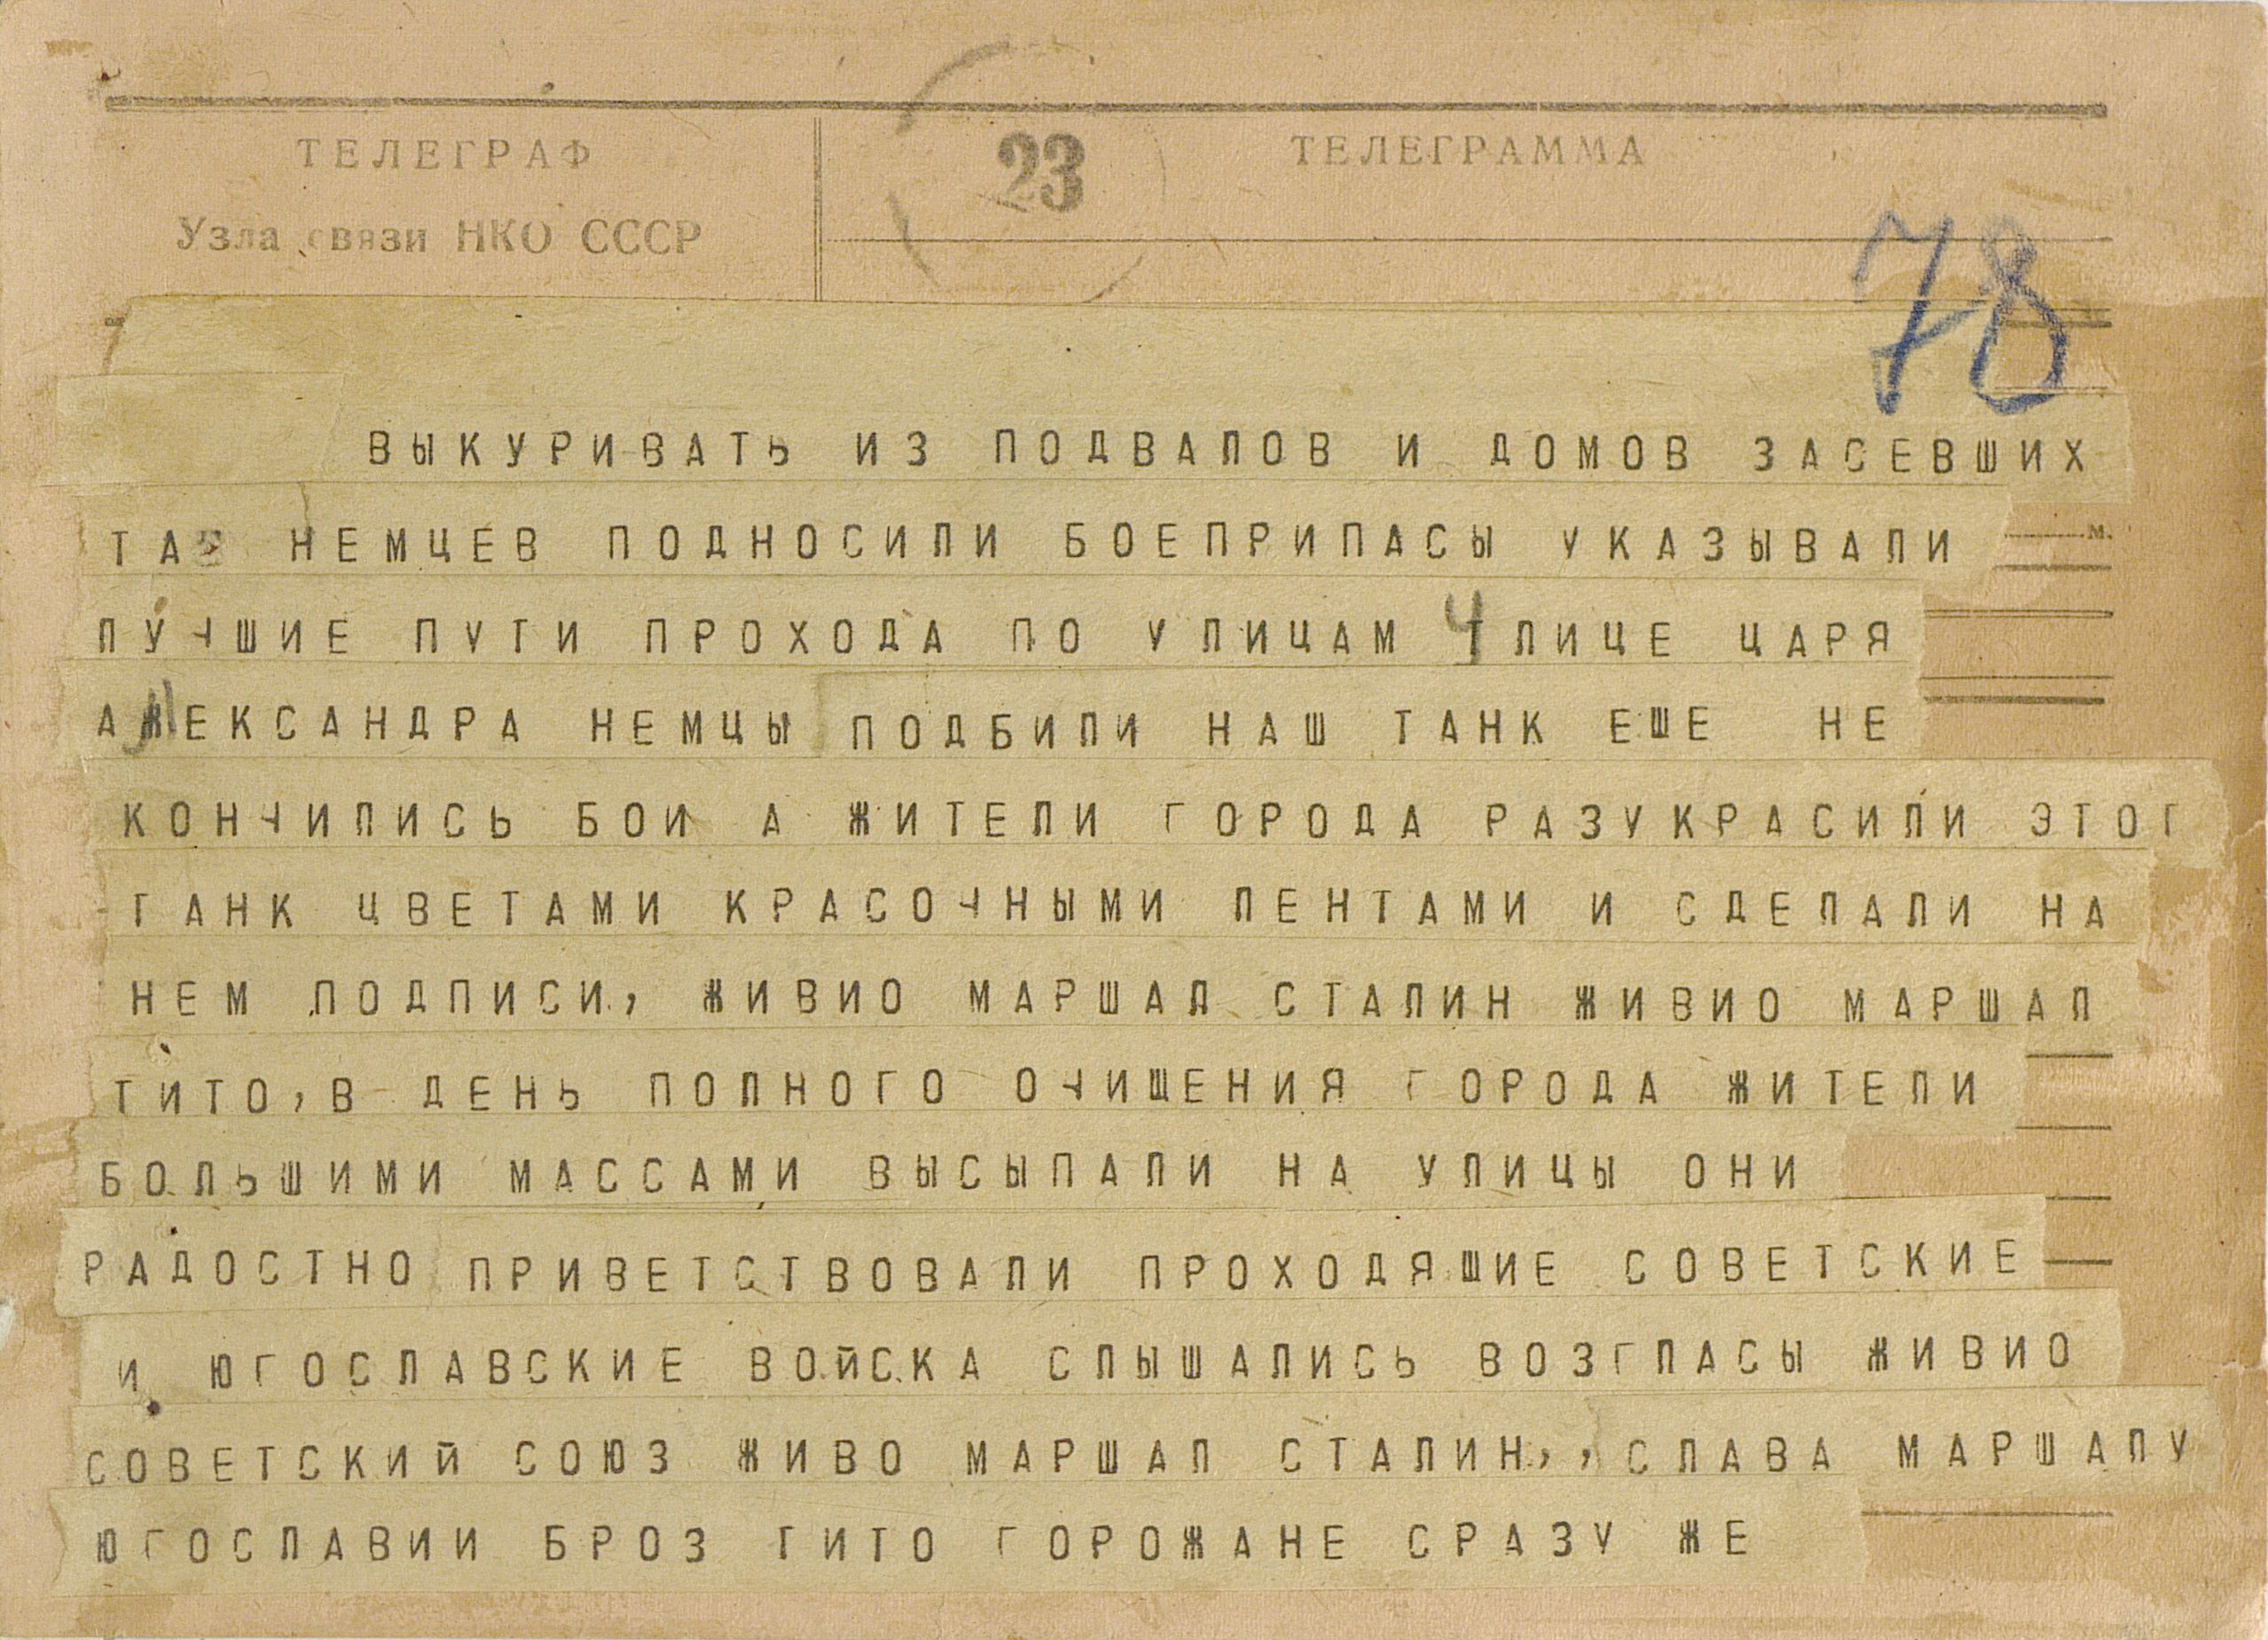 ТЕЛЕГРАФ
Узла связи НКО СССР
23
ТЕЛЕГРАММА
78
ВЫКУРИВАТЬ ИЗ ПОДВАЛОВ И ДОМОВ ЗАСЕВШИХ
НЕМЦЕВ ПОДНОСИЛИ БОЕПРИПАСЫ УКАЗЫВАЛИ
ЛУЧШИЕ ПУТИ ПРОХОДА ПО УЛИЦАМ УЛИЦЕ ЦАРЯ
АЛЕКСАНДРА НЕМЦЫ ПОДБИЛИ НАШ ТАНК ЕШЕ НЕ
КОНЧИЛИСЬ БОИ А ЖИТЕЛИ ГОРОДА РАЗУКРАСИЛИ ЭТОТ
ТАНК ЦВЕТАМИ КРАСОЧНЫМИ ЛЕНТАМИ И СДЕЛАЛИ НА
НЕМ ПОДПИСИ, ЖИВИО МАРШАЛ СТАЛИН ЖИВИО МАРШАЛ
ТИТО,В ДЕНЬ ПОЛНОГО ОЧИЩЕНИЯ ГОРОДА ЖИТЕЛИ
БОЛЬШИМИ МАССАМИ ВЫСЫПАЛИ НА УЛИЦЫ ОНИ
РАДОСТНО ПРИВЕТСТВОВАЛИ ПРОХОДЯШИЕ СОВЕТСКИЕ
И ЮГОСЛАВСКИЕ ВОЙСКА СЛЫШАЛИСЬ ВОЗГЛАСЫ ЖИВИО
СОВЕТСКИЙ СОЮЗ ЖИВО МАРШАЛ СТАЛИН,,СЛАВА МАРШАЛУ
ЮГОСЛАВИИ БРОЗ ТИТО ГОРОЖАНЕ СРАЗУ ЖЕ